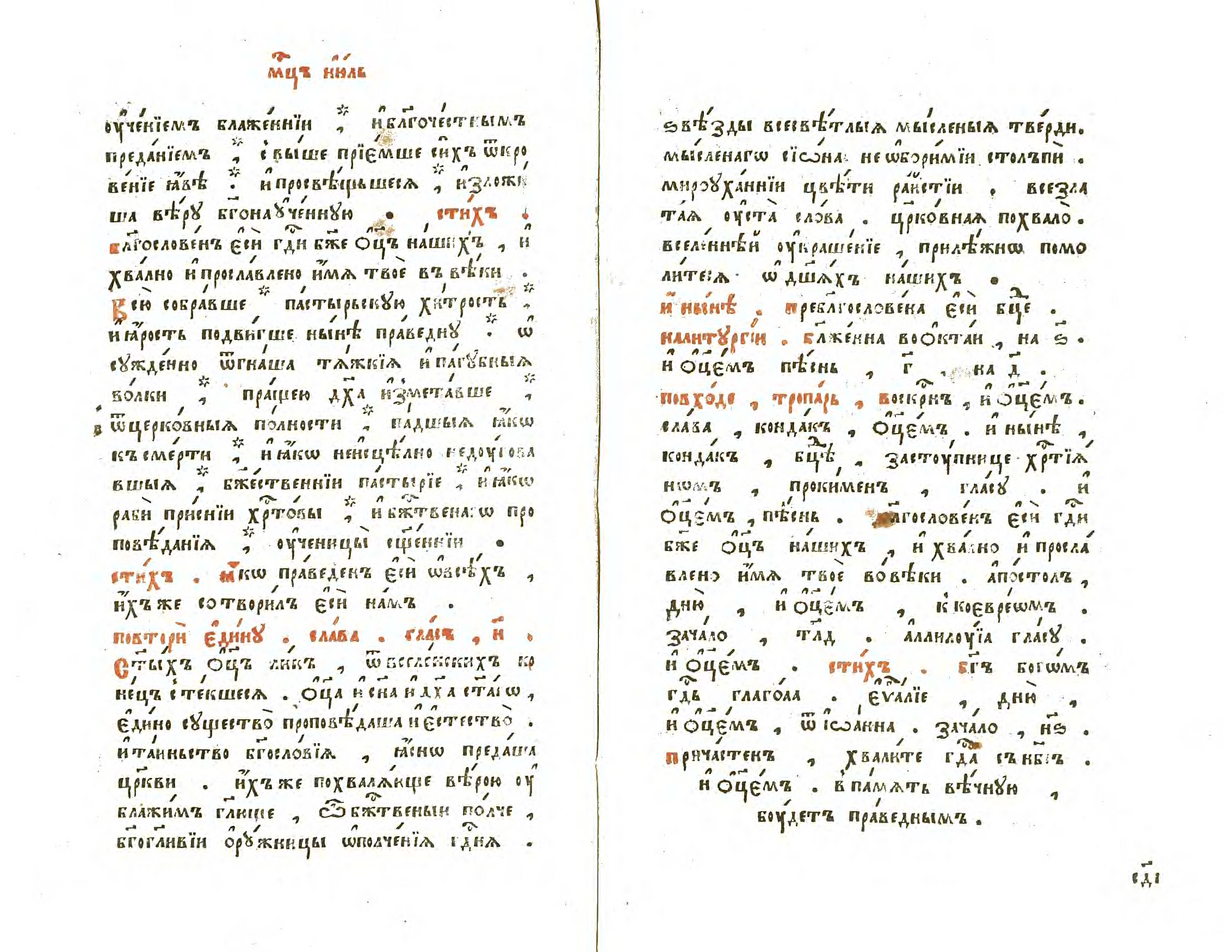 мц҃ъ и҆ю́ль
оу҆че́нїемъ блаже́ннїи ⁏ и҆ бл҃гоче́стнымъ
преда́нїемъ ⁏ свы́ше прїе́мше си́хъ ѿкро
ве́нїе ꙗ҆́вѣ ⁏ и҆ просвѣ́щьшеся ⁏ и҆зложи́
ша вѣ́рꙋ бг҃онаꙋче́ннꙋю . сти́хъ .
бл҃гослове́нъ є҆сѝ гд҃и бж҃е ѻ҆ц҃ъ на́шихъ , и҆
хва́лно и҆ просла́влено и҆́мя твоѐ въ вѣ́ки .
Всю̀ собра́вше па́стырьскꙋю хи́трость ⁏
и҆ ꙗ҆́рость подви́гше ны́нѣ пра́веднꙋ ⁏ ѡ҆
сꙋжде́нно ѿгна́ша тя́жкїя и҆ па́гꙋбныя
во́лки ⁏ пра́щею дх҃а и҆змета́вше ⁏
ѿ церко́вныя по́лности ⁏ па́дшыя ꙗ҆́кѡ
къ сме́рти ⁏ и҆ ꙗ҆́кѡ неисцѣ́лно недоу́гова
вшыя ⁏ бж҃е́ственнїи па́стырїе ⁏ и҆ ꙗ҆́кѡ
рабѝ при́снїи хр҃то́вы ⁏ и҆ бж҃твенагѡ про
повѣ́данїя ⁏ оу҆ченицы̀ сщ҃е́ннїи .
сти́хъ . ꙗ҆́кѡ пра́веденъ є҆сѝ ѡ҆ всѣ́хъ ,
и҆́хъ же сотвори́лъ є҆сѝ на́мъ .
повторѝ є҆ди́нꙋ . сла́ва . гла́съ , и҃ .
Ст҃ы́хъ ѻ҆ц҃ъ ли́къ , ѿ вселе́нскихъ ко
не́цъ сте́кшеся . ѻ҆ц҃а и҆ сн҃а и҆ дх҃а ст҃а́гѡ ,
є҆ди́но сꙋщество̀ проповѣ́даша и҆ є҆стество̀ .
и҆ та́иньство бг҃осло́вїя , ꙗ҆́снѡ преда́ша
цр҃кви . и҆́хъ же похваля́юще вѣ́рою оу҆
блажи́мъ гл҃юще , ѽ бж҃тве́ныи по́лче ,
бг҃огл҃и́вїи ѻ҆рꙋ́жницы ѡ҆полче́нїя гд҃ня .
ѕвѣ́зды всесвѣ́тлыя мы́сленыя тве́рди .
мы́сленагѡ сїѡ́на неѡ҆бори́мїи столпѝ .
мироꙋха́ннїи цвѣ́ти ра́йстїи , всезла
та́я оу҆ста̀ сло́ва . цр҃ко́вная похвало̀ .
вселе́ннѣй оу҆краше́нїе , прилѣ́жнѡ помо
ли́теся ѡ҆ дш҃а́хъ на́шихъ .
и҆ ны́нѣ . пребл҃гослове́на є҆сѝ бц҃е .
на литꙋргі́и . бл҃же́нна во ѻ҆кта́и , на ѕ҃ .
и҆ ѻ҆ц҃е́мъ пѣ́снь , г҃ . на д҃ .
по вхо́де , тропа́рь , воскр҃нъ , и҆ ѻ҆ц҃е́мъ .
сла́ва , конда́къ , ѻ҆ц҃е́мъ . и҆ ны́нѣ ,
конда́къ , бц҃ѣ , застоу́пнице хр҃тїя́
нѡмъ , проки́менъ , гла́сꙋ . и҆
ѻ҆ц҃е́мъ , пѣ́снь . бл҃гослове́нъ є҆сѝ гд҃и
бж҃е ѻ҆ц҃ъ на́шихъ , и҆ хва́лно и҆ просла́
влено и҆́мя твоѐ во вѣ́ки . а҆по́столъ ,
дню̀ , и҆ ѻ҆ц҃е́мъ , к коевре́ѡмъ .
зача́ло , тл҃д . а҆ллилоу́їа гла́сꙋ .
и҆ ѻ҆ц҃е́мъ . сти́хъ . бг҃ъ богѡ́мъ
гд҃ь глаго́ла . є҆ѵⷢ҇алїе , дню̀ ,
и҆ ѻ҆ц҃е́мъ , ѿ їѡа́нна . зача́ло , н҃ѕ .
прича́стенъ , хвали́те гд҃а съ нб҃съ .
и҆ ѻ҆ц҃е́мъ . в па́мять вѣ́чнꙋю ,
боу́детъ пра́веднымъ .